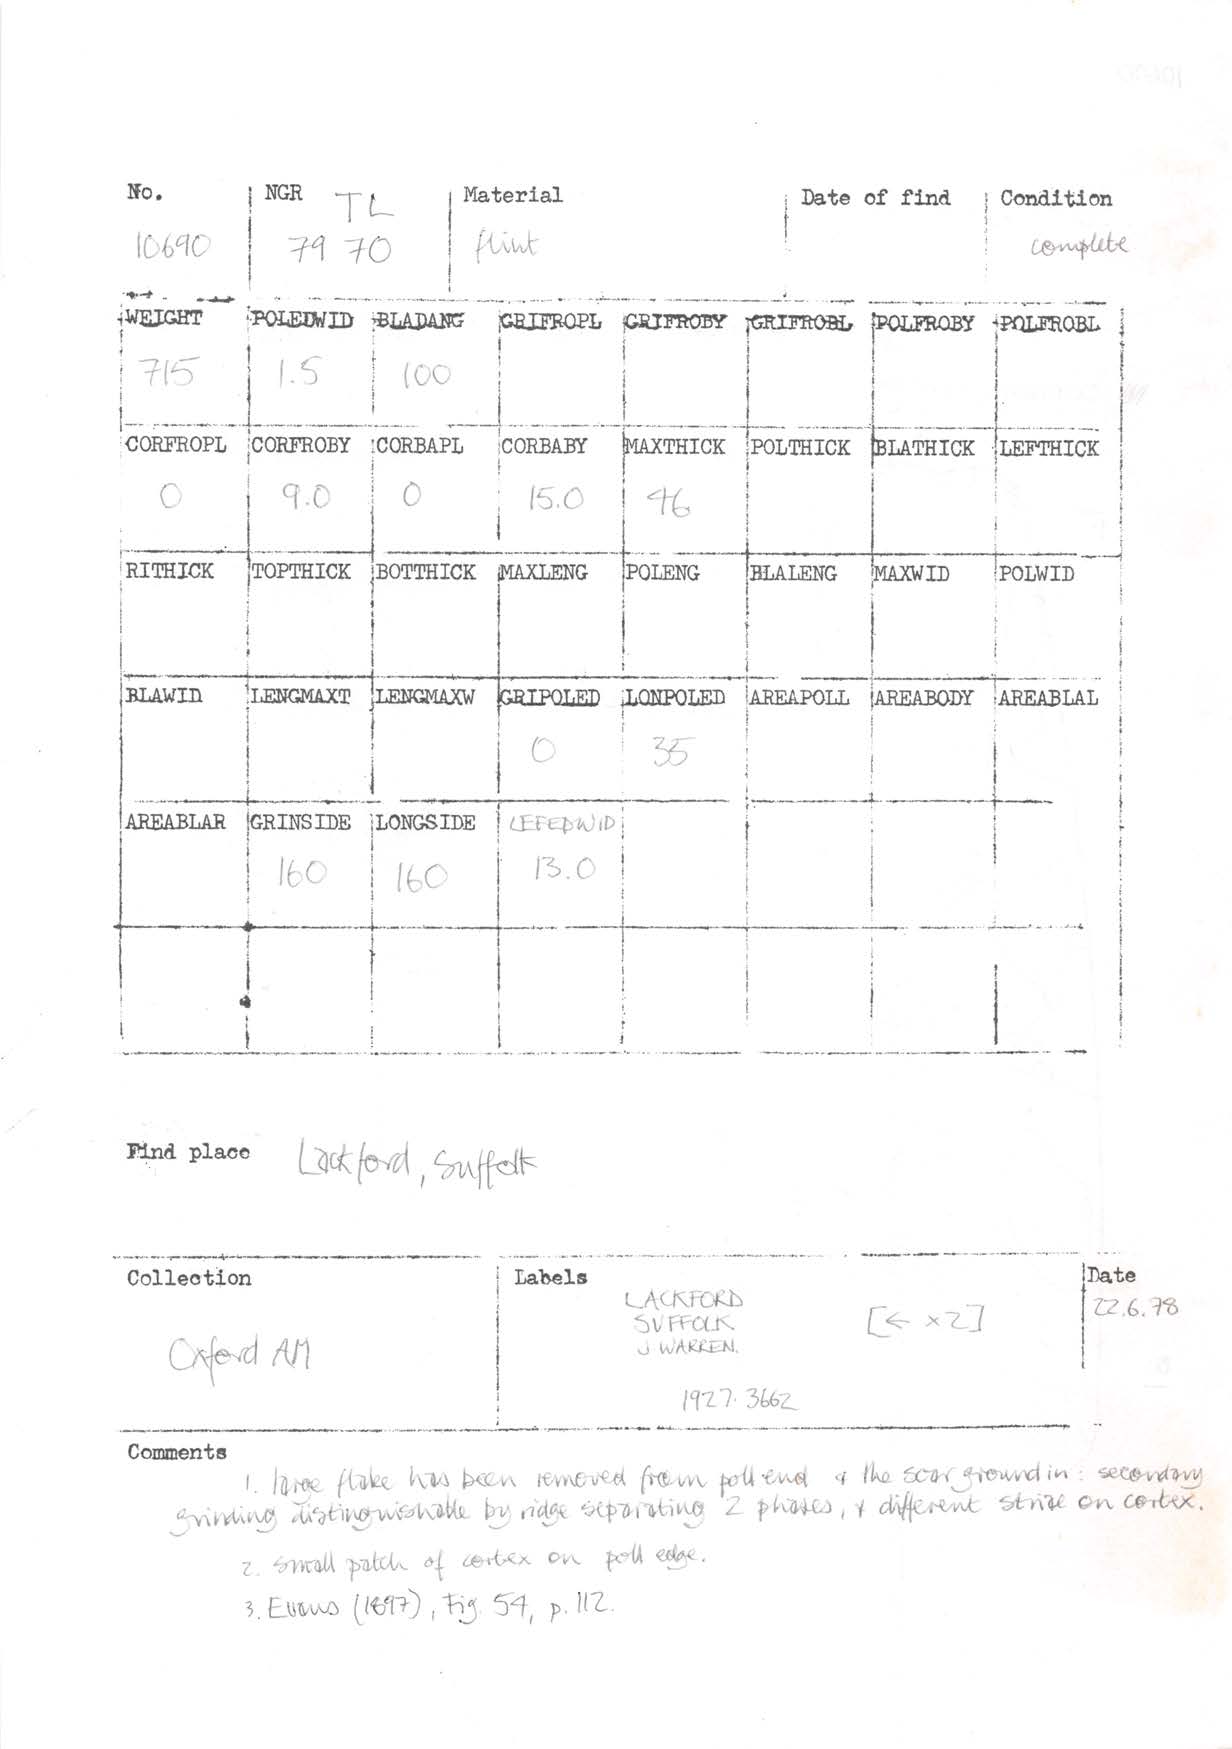 No. NGR TL Material Date of find Condition
10690 79 70 flint complete
WEIGHT POLEDWID BLADANG GRIFROPL GRIFROBY GRIFROBL POLFROBY POLFROBL
715 1.5 100
CORFROPL CORFROBY CORBAPL CORBABY MAXTHICK POLTHICK BLATHICK LEFTHICK
0 9.0 0 15.0 46
RITHICK TOPTHICK BOTTHICK MAXLENG POLENG BLALENG MAXWID POLWID
BLAWID LENGMAXT LENGMAXW GRIPOLED LONPOLED AREAPOLL AREABODY AREABLAL
0 35
AREABLAR GRINSIDE LONGSIDE LEFEDWID
160 160 13.0
Find place Lackford, Suffolk
Collection Labels Date
LACKFORD
SUFFOLK [← x2] 22.6.78
J WARREN.
Oxford AM
1927.3662
Comments
1. large flake has been removed from poll end & the scar ground in: secondary
grinding distinguishable by ridge separating 2 phases, & different striae on cortex.
2. small patch of cortex on poll edge.
3. Evans (1897), Fig. 54, p. 112.